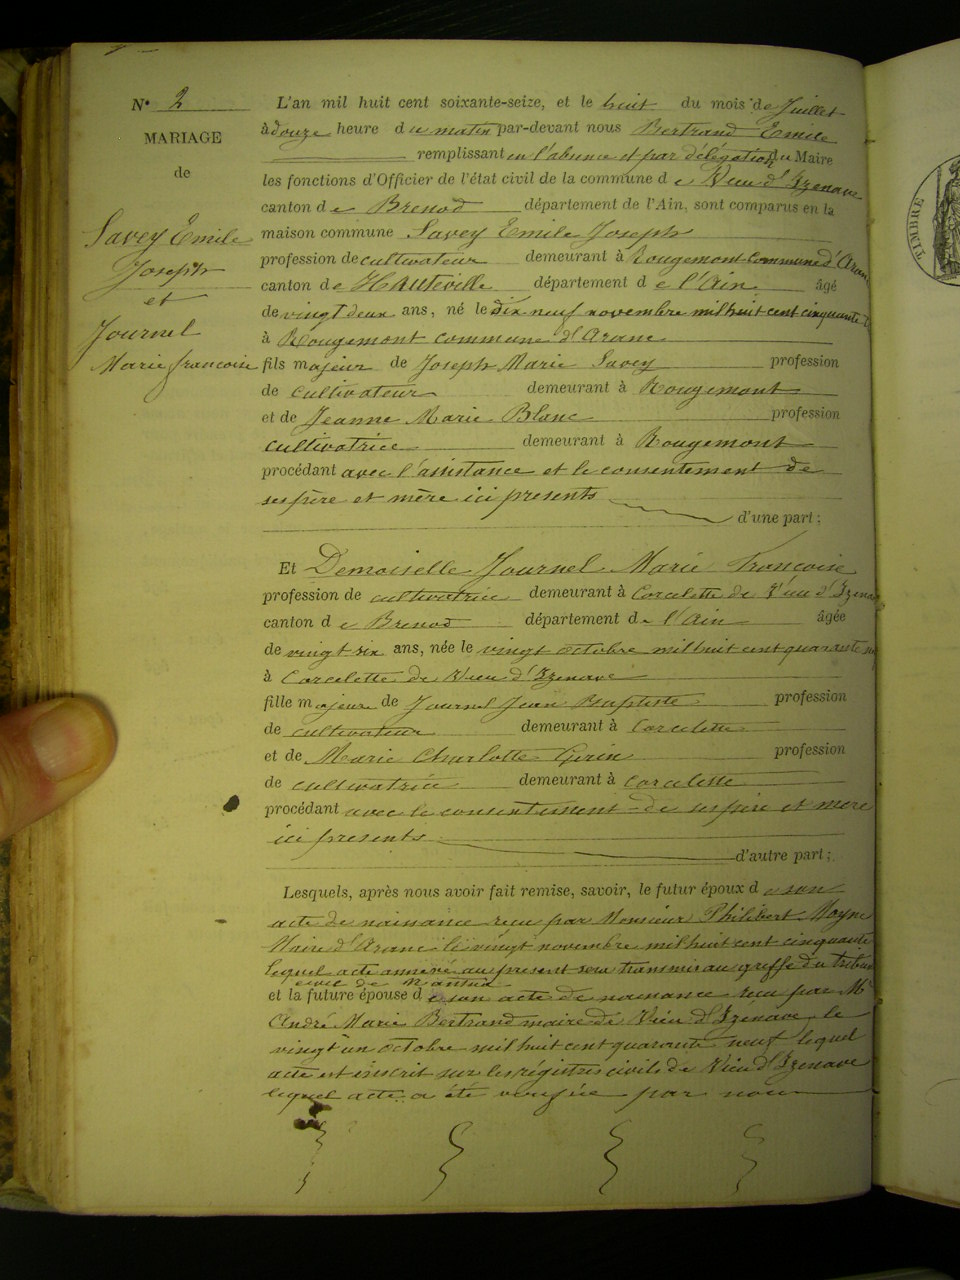 N° 2
MARIAGE
de
Savey Emile
Joseph
et
Journel
Marie françoise
L'an mil huit cent soixante-seize, et le huit du mois de Juillet
à douze heure du matin par-devant nous Bertrand Emile
remplissant en l'absence et par délégation du Maire
les fonctions d'Officier de l'état civil de la commune de Vieu d'Izenave
canton de Brenod département de l'Ain, sont comparus en la
maison commune Savey Emile Joseph
profession de cultivateur demeurant à Rougemont commune d'Aranc
canton de Hauteville département de l'Ain âgé
de vingt deux ans, né le dix neuf novembre mil huit cent cinquante
à Rougemont commune d'Aranc
fils majeur de Joseph Marie Savey profession
de cultivateur demeurant à Rougemont
et de Jeanne Marie Blanc profession
cultivatrice demeurant à Rougemont
procédant avec l'assistance et le consentement de
ses père et mère ici présents
d'une part;
Et Demoiselle Journel Marie Françoise
profession de cultivatrice demeurant à Corcelette de Vieu d'Izenave
canton de Brenod département de l'Ain âgée
de vingt six ans, née le vingt octobre mil huit cent quarante
à Corcelette de Vieu d'Izenave
fille majeure de Journel Jean Baptiste profession
de cultivateur demeurant à Corcelette
et de Marie Charlotte profession
de cultivatrice demeurant à Corcelette
procédant avec le consentement de ses père et mère
ici présents
d'autre part;
Lesquels, après nous avoir fait remise, savoir, le futur époux de son
acte de naissance reçu par Monsieur Philibert Moyne
Maire d'Aranc le vingt novembre mil huit cent cinquante
lequel acte annexé au présent sera transmis au greffe du tribunal
civil de Nantua
et la future épouse de son acte de naissance reçu par Mr
André Marie Bertrand maire de Vieu d'Izenave le
vingt un octobre mil huit cent quarante neuf lequel
acte est inscrit sur les régistres civils de Vieu d'Izenave
lequel acte a été verifiée par nous
TIMBRE